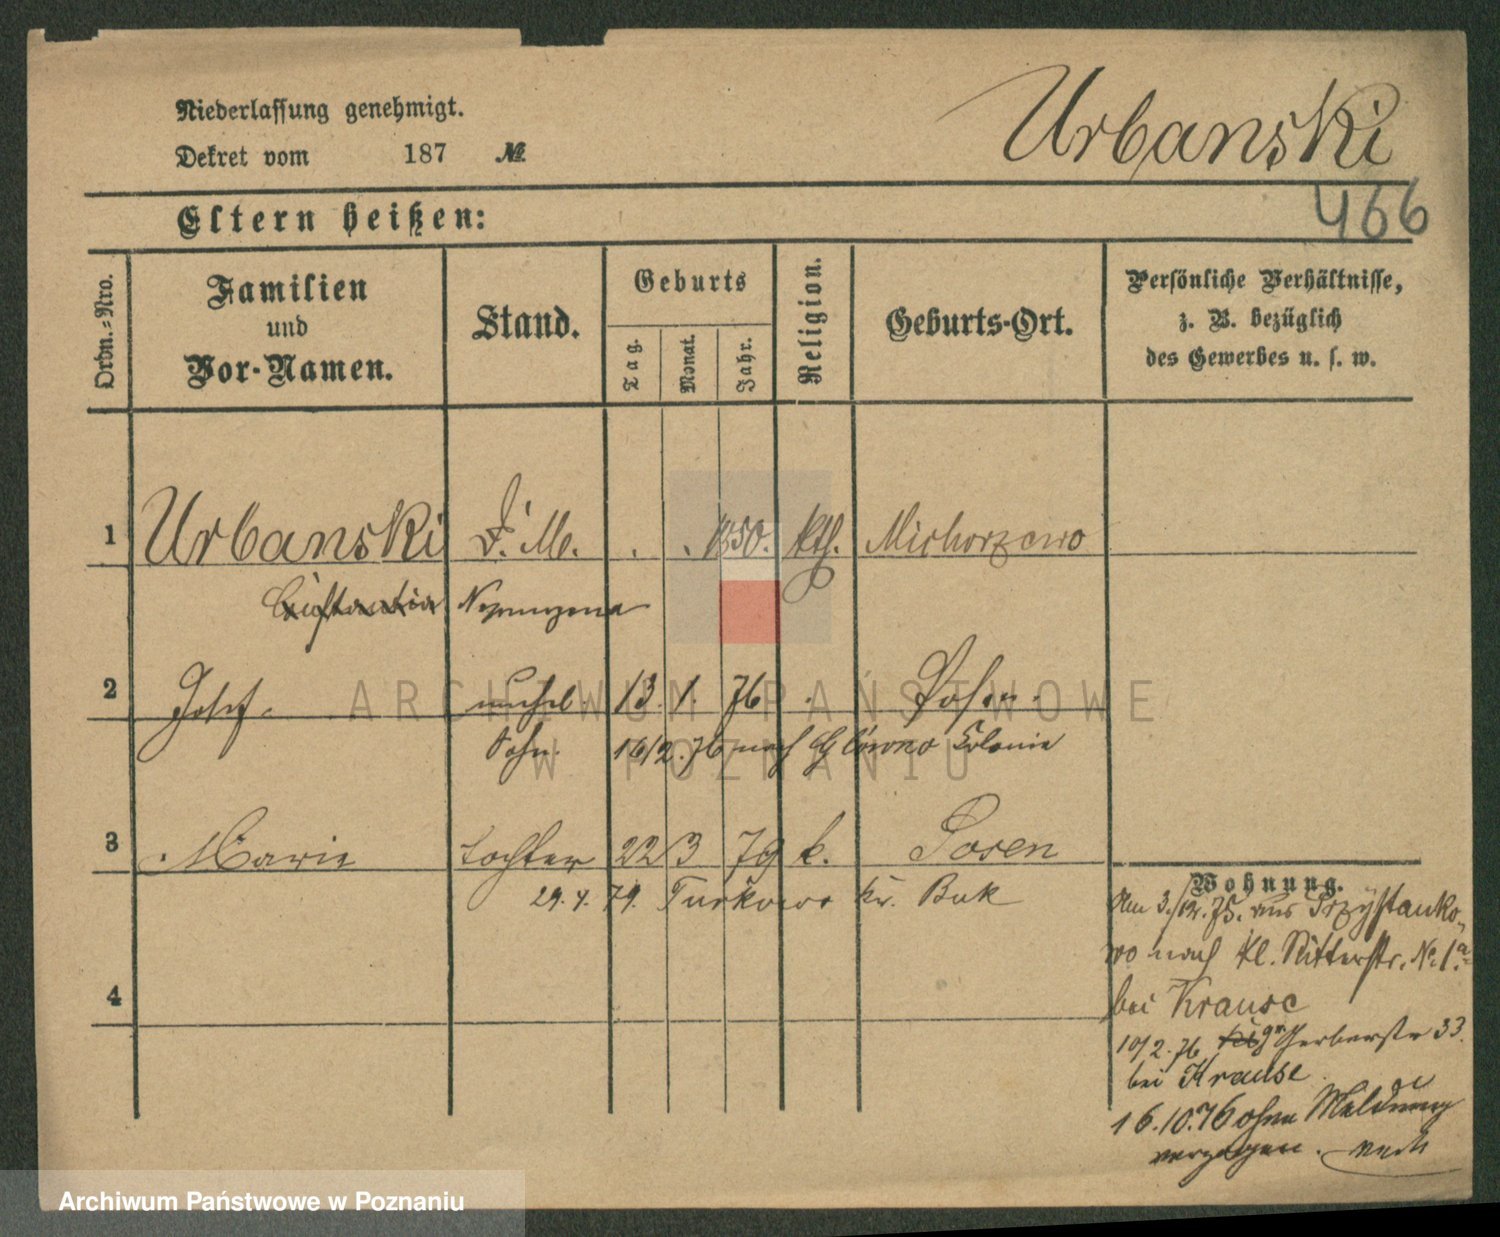 Niederlassung genehmigt.
Urbanski
Dekret vom 187 №
466
Eltern heißen:
Ordn.-Nro.
Familien
und
Vor-Namen.
Stand.
Geburts
Tag.
Monat.
Jahr.
Religion.
Geburts-Ort.
Persönliche Verhältnisse,
z. B. bezüglich
des Gewerbes u. s. w.
1 Urbanski . . 1850. kth.
2 Josef. unehel 13. 1. 76 . Posen.
Sohn. 16/2. 76 nach Glowno Colonie
3 Marie Tochter 22 3 79 k. Posen
29. 4. 79. Turkowo Kr. Buk
4
Wohnung.
Am 3./12. 75. aus Przystanko-
wo nach kl. Ritterstr. No. 1a
bei Krause
10/2. 76 gr Gerberstr 33.
bei Krause
16.10.76 ohne Meldung
verzogen.
ARCHIWUM PAŃSTWOWE
W POZNANIU
Archiwum Państwowe w Poznaniu